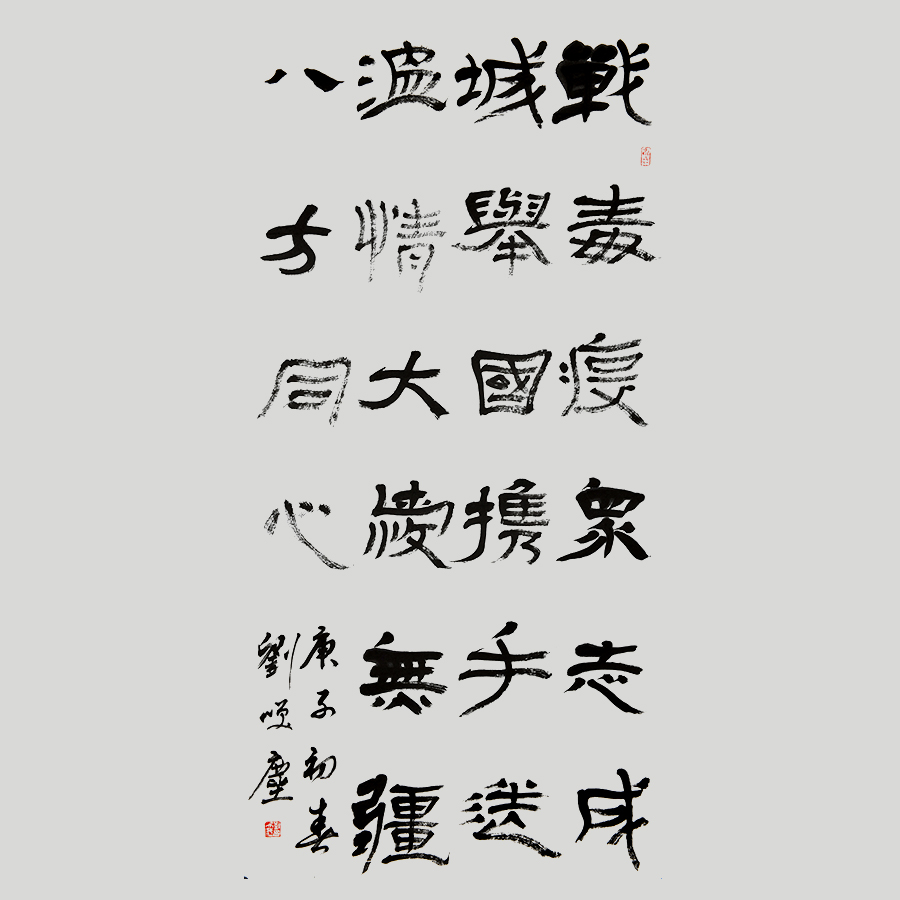 戰毒疫眾志成
城舉國携手送
溫情大愛無疆
八方同心
庚子初春
劉塵